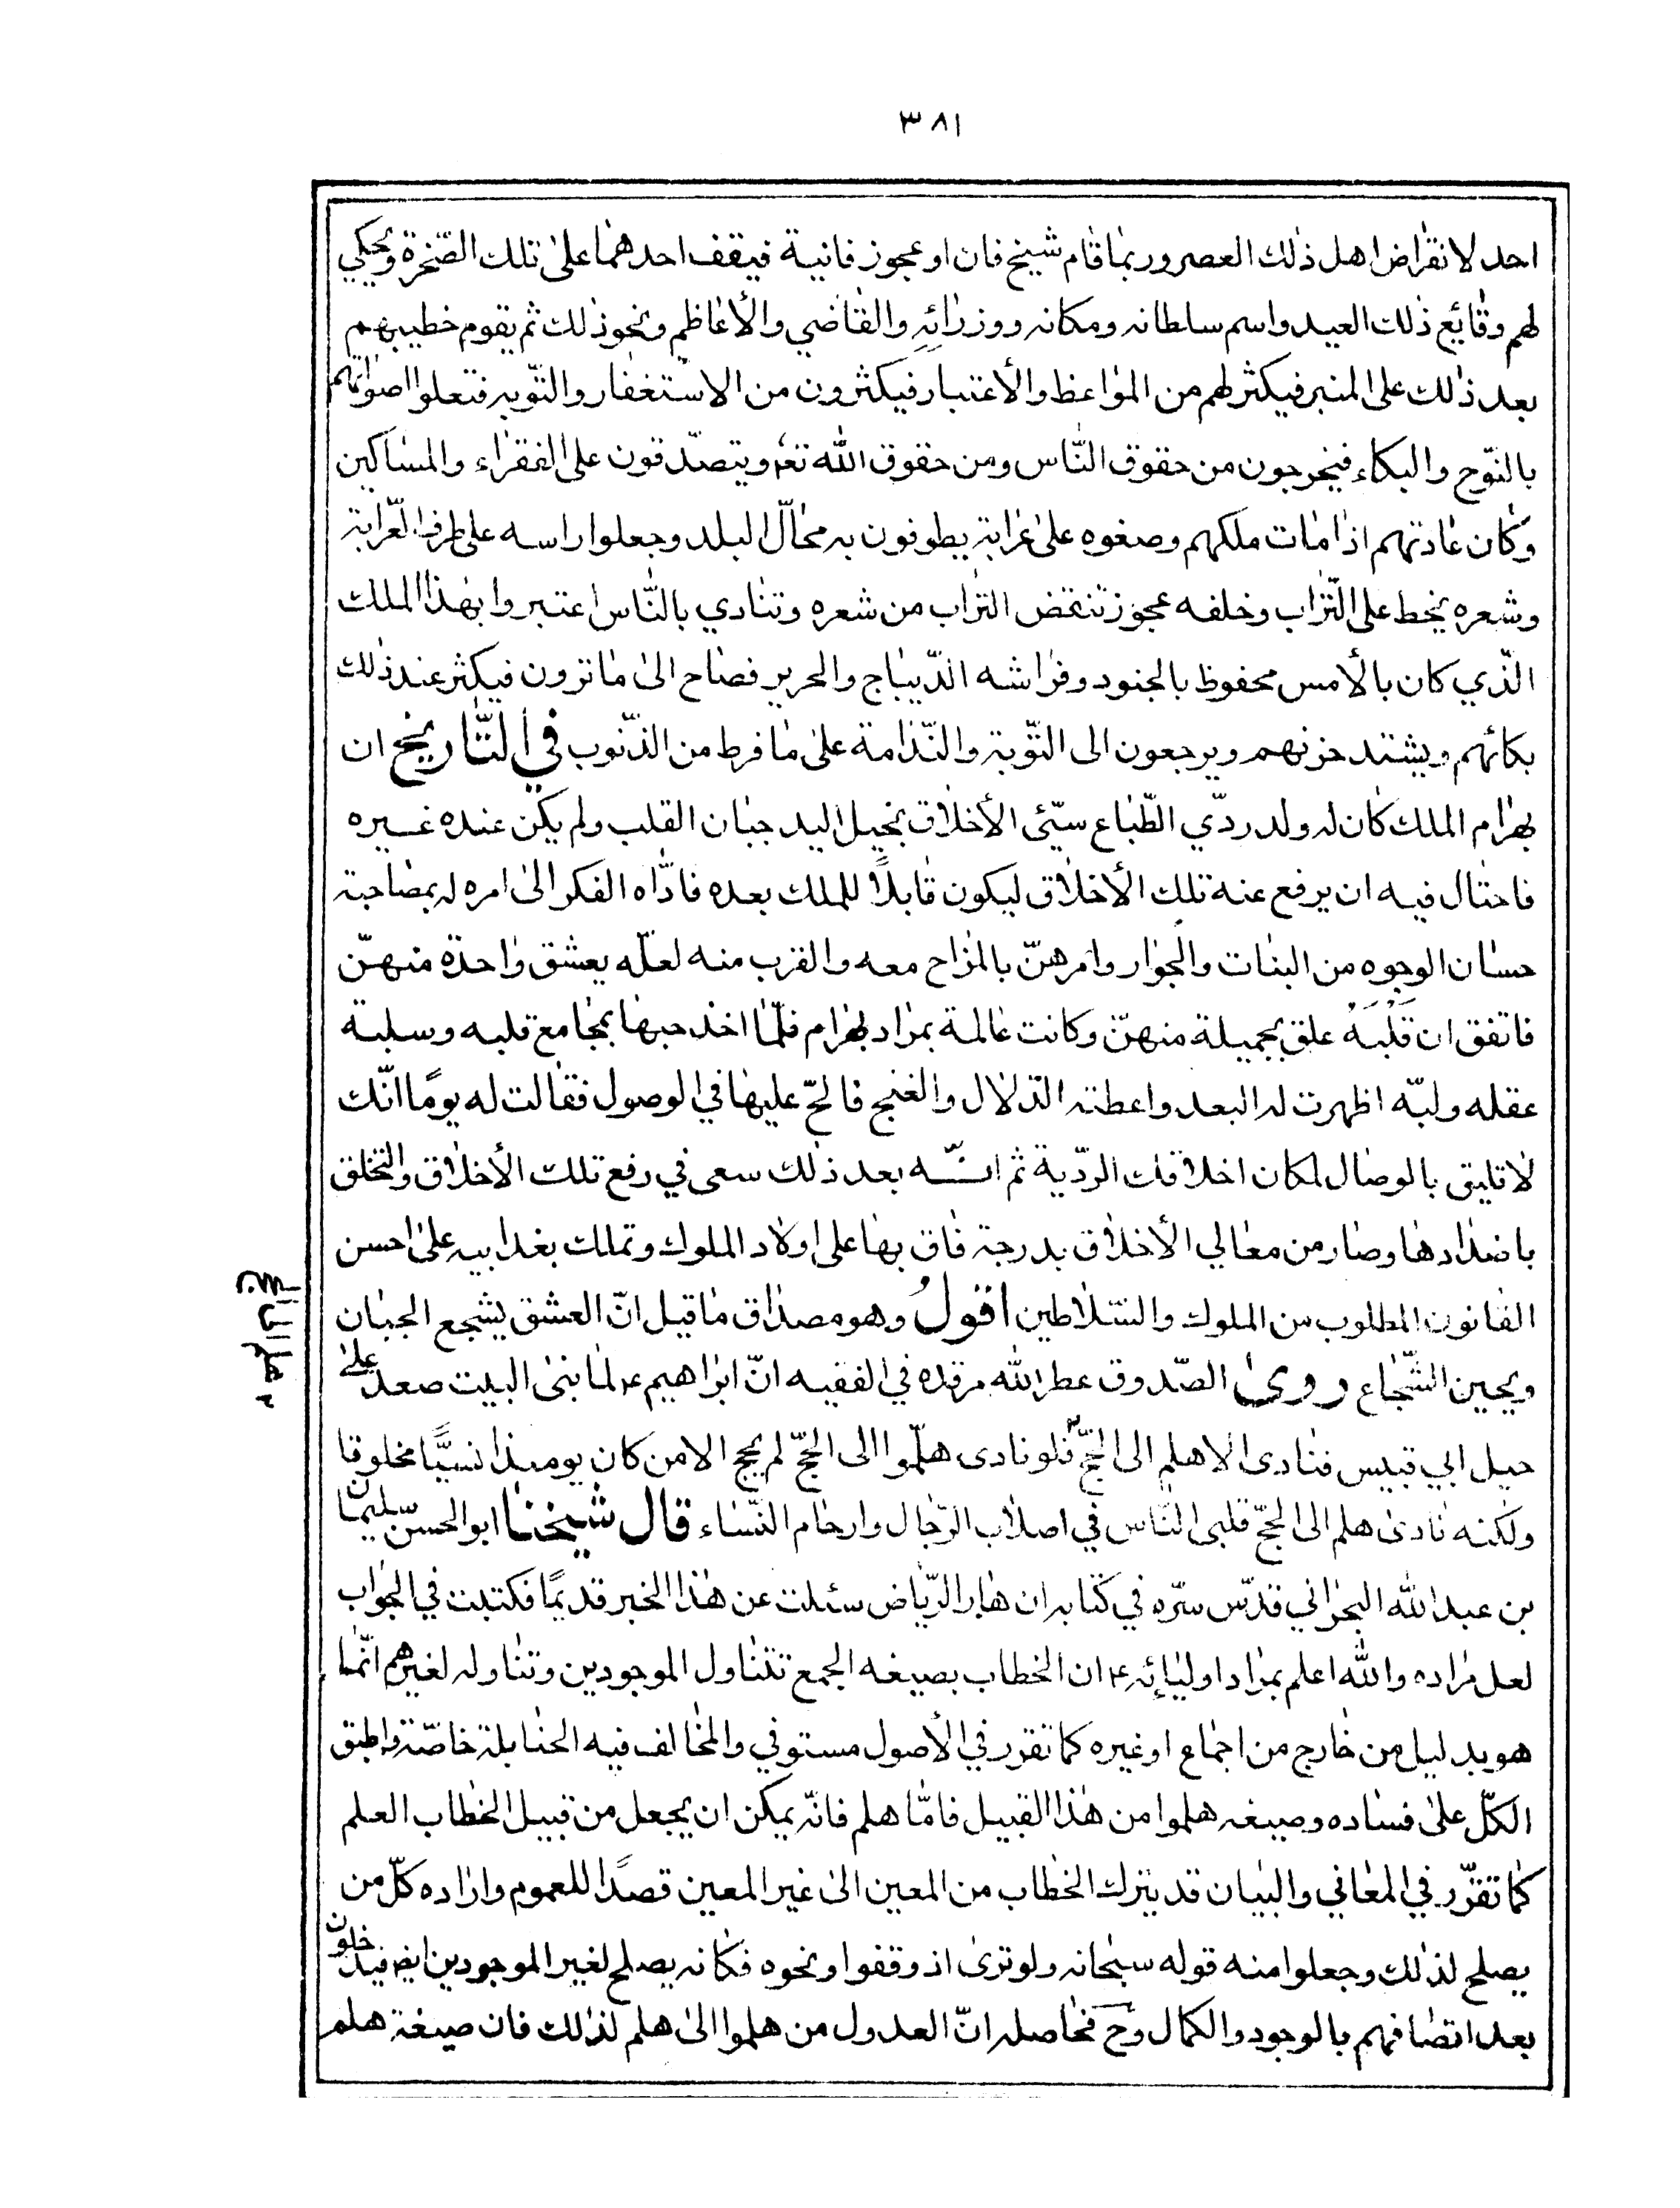 ٣٨١
احد لانقراض اهل ذلك العصر وربما قام شيخ فان او عجوز فانية فيقف احدهما على تلك الصّخرة ويحكي
لهم وقايع ذلك العيد واسم سلطانه ومكانه ووزرائه والقاضي والأعاظم ونحو ذلك ثم يقوم خطيبهم
بعد ذلك على المنبر فيكثر لهم من المواعظ والأعتبار فيكثرون من الاستغفار والتّوبه فتعلوا اصواتهم
بالنّوح والبكاء فيخرجون من حقوق النّاس ومن حقوق الله تع‍ ويتصدّقون على الفقراء والمساكين
وكان عادتهم اذا مات ملكهم وضعوه على عرابة يطوفون به محالّ البلد وجعلوا راسه على طرف العرابة
وشعره يخط على التّراب وخلفه عجوز تنفض التراب من شعره وتنادي بالنّاس اعتبروا بهذا الملك
الّذي كان بالأمس محفوظ بالجنود وفراشه الدّيباج والحرير فصاح الى ما ترون فيكثر عند ذلك
بكائهم ويشتد حزنهم ويرجعون الى التّوبة والنّدامة على ما فرط من الذنوب في التّاريخ ان
بهرام الملك كان له ولد ردّي الطّباع سيّئي الأخلاق بخيل اليد جبان القلب ولم يكن عنده غيره
فاحتال فيه ان يرفع عنه تلك الأخلاق ليكون قابلاً للملك بعده فادّاه الفكر الى امره له بمصاحبة
حسان الوجوه من البنات والجوار وامرهنّ بالمزاح معه والقرب منه لعلّه يعشق واحدة منهنّ
فاتفق ان قَلْبَهُ علق بجميلة منهنّ وكانت عالمة بمراد بهرام فلمّا اخذ حبها بمجامع قلبه وسلبه
عقله ولبّه اظهرت له البعد واعطته الدّلال والغنج فالحّ عليها في الوصول فقالت له يومًا انّك
لا تليق بالوصال لمكان اخلاقك الردّية ثم انّه بعد ذلك سعى في رفع تلك الأخلاق والتخلق
باضدادها وصار من معالي الأخلاق بدرجة فاق بها على اولاد الملوك وتملك بعد ابيه على احسن
القانون المطلوب من الملوك والسّلاطين اقولُ وهو مصداق ما قيل انّ العشق يشجع الجبان
ويجبن الشّجاع روى الصّدوق عطر الله مرقده في الفقيه انّ ابراهيم ع لما بنى البيت صعد على
جبل ابي قبيس فنادى الا هلم الى الحجّ فلو نادى هلمّوا الى الحجّ لم يحج الا من كان يومئذ انسيًّا مخلوقا
ولكنه نادى هلم الى الحجّ فلبى النّاس في اصلاب الرّجال وارحام النّساء قال شيخنا ابو الحسن سليمان
بن عبد الله البحراني قدّس سّره في كتابه ازهار الرّياض سئلت عن هذا الخبر قديمًا فكتبت في الجواب
لعل مراده والله اعلم بمراد اوليائه ع ان الخطاب بصيغه الجمع تتناول الموجودين وتناوله لغيرهم انّما
هو بدليل من خارج من اجماع او غيره كما تقرر في الأصول مستوفي والمخالف فيه الحنابلة خاصّة واطبق
الكلّ على فساده وصيغه هلموا من هذا القبيل فامّا هلم فانّه يمكن ان يجعل من قبيل الخطاب العلم
كما تقرّر في المعاني والبيان قد يترك الخطاب من المعين الى غير المعين قصدًا للعموم واراده كلّ من
يصلح لذلك وجعلوا منه قوله سبحانه ولو ترى اذ وقفوا ونحوه فكانه يصلح لغير الموجودين ايض فيدخلون
بعد اتصافهم بالوجود والكمال وح‍ فحاصله انّ العدول من هلموا الى هلم لذلك فان صيغة هلم